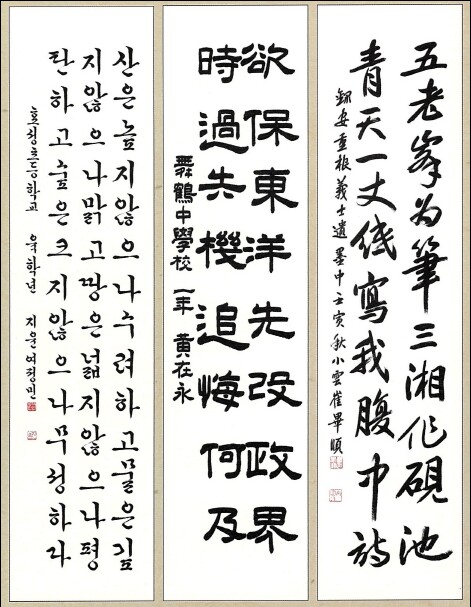 五老峯为筆三湘作硯池
青天一丈紙寫我腹中詩
録安重根義士遺墨中 壬寅秋 小雲 崔畢順
欲保東洋先改政界
時過失機追悔何及
舞鶴中學校 一年 黄在永
산은높지않으나수려하고물은깊
지않으나맑고땅은넓지않으나평
탄하고숲은크지않으나무성하다
초등학교 육학년 지운 여정빈